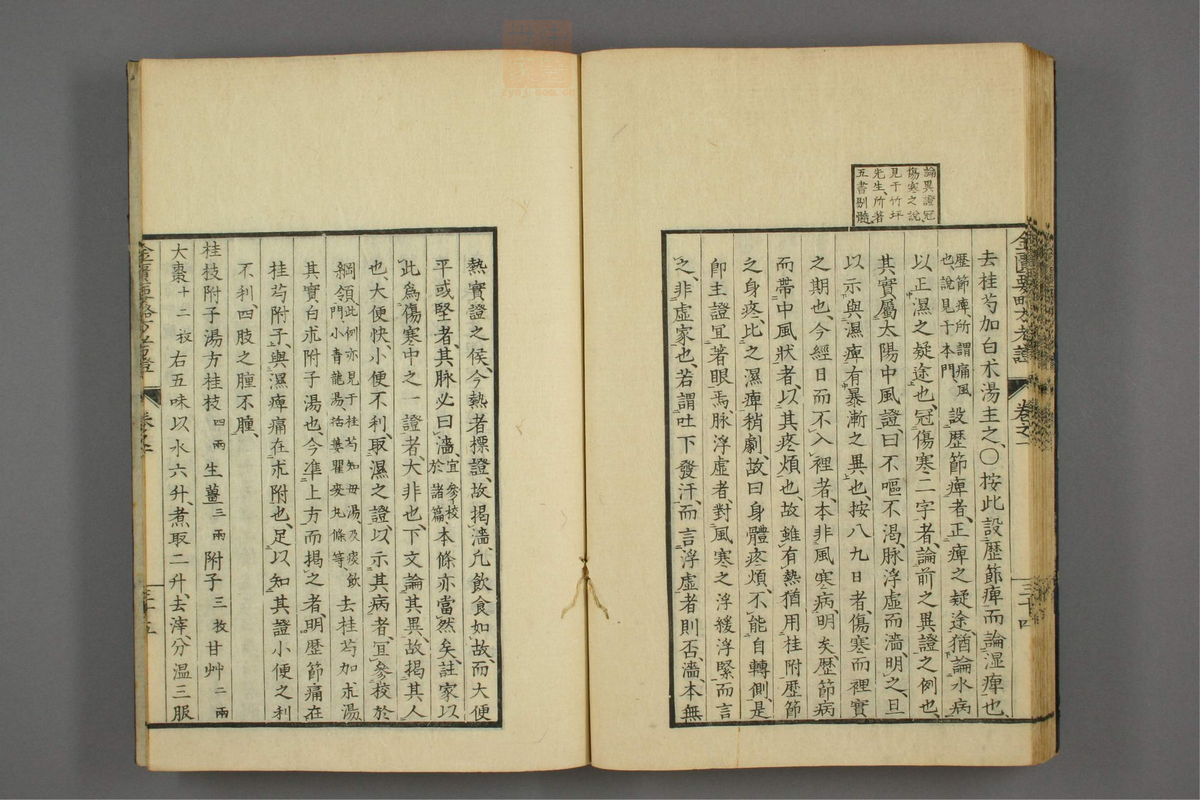 論異證冠
傷寒之說
見于竹坪
先生所著
五書剔髓
去桂芍加白朮湯主之、〇按此設歷節痺而論湿痺也、
歷節痺、所謂痛風
也說見于本門
設歷節痺者、正痺之疑途、猶論水病
以正濕之疑途也、冠傷寒二字者、論前之異證之例也、
其實屬太陽中風證、曰不嘔不渴、脉浮虛而濇明之、旦
以示與濕痺有暴漸之異也、按八九日者、傷寒而裡實
之期也、今經日而不入裡者、本非風寒病、明矣歷節病
而帶中風狀者、以其疼煩也、故雖有熱猶用桂附歷節
之身疼、比之濕痺稍劇、故曰身體疼煩、不能自轉側、是
卽主證冝著眼焉、脉浮虛者、對風寒之浮緩浮緊而言
之、非虛家也、若謂吐下發汗、而言浮虛者則否、濇、本無
金匱要略方考證
卷之一
三十四
熱實證之候、今熱者標證、故揭濇、凢飮食如故、而大便
平或堅者、其脉必曰濇、
宜參校
於諸篇
本條亦當然矣、註家以
此爲傷寒中之一證者、大非也、下文論其異、故揭其人
也、大便快、小便不利、取濕之證、以示其病者、冝參校於
綱領、
此例亦見于桂芍知毋湯、及痰飮
門小青龍湯、栝蔞瞿麥丸條等、
去桂芍加朮湯
其實、白朮附子湯也今準上方而揭之者、明歷節痛在
桂芍附子、與濕痺痛在朮附也、足以知其證小便之利
不利、四肢之腫不腫、
桂枝附子湯方桂枝四兩生薑三兩附子三枚甘艸二兩
大棗十二枚右五味以水六升煮取二升、去滓、分温三服
金匱要略方考證
卷之一
三十五